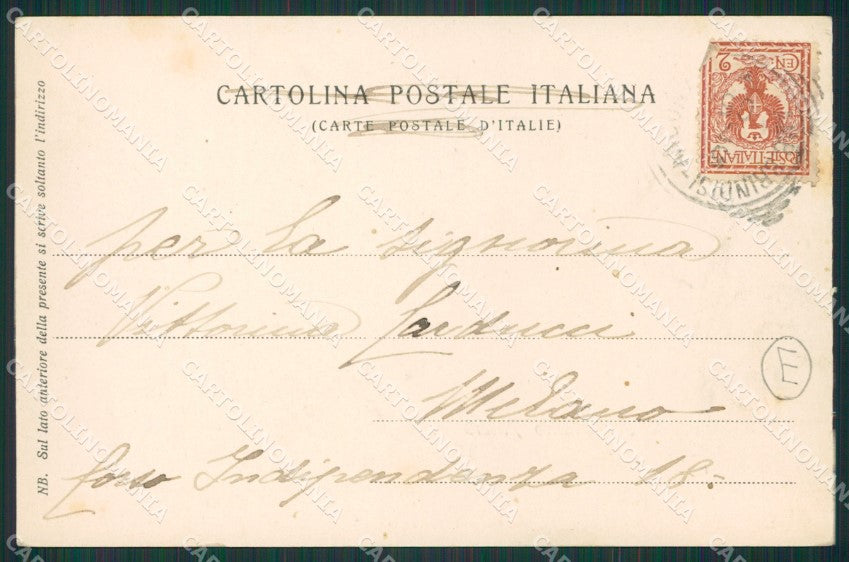 CARTOLINA POSTALE ITALIANA
(CARTE POSTALE D'ITALIE)
CEN. 2
POSTE ITALIANE
per la signorina
Vittorina Carducci
Milano
Corso Indipendenza 18 -
NB. Sul lato anteriore della presente si scrive soltanto l'indirizzo
CARTOLINOMANIA